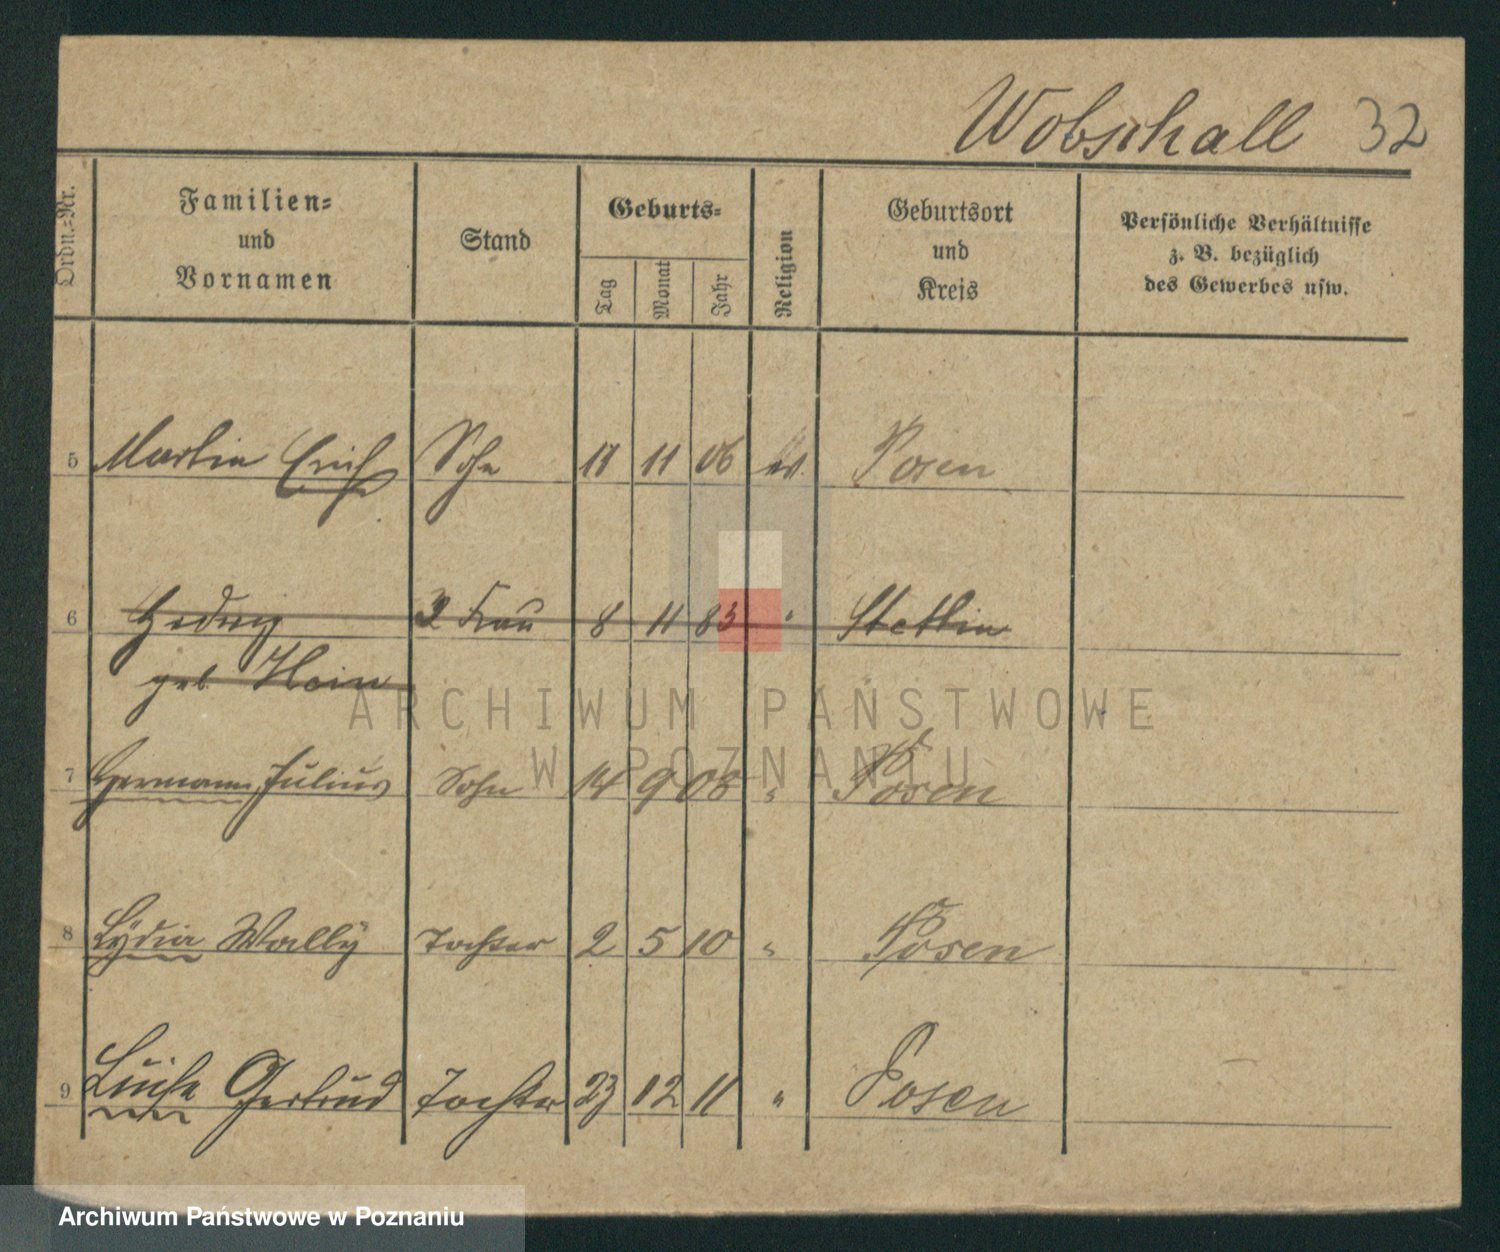 Wobschall 32
Ordn.-Nr. Familien- und Vornamen Stand Geburts- Tag Monat Jahr Religion Geburtsort und Kreis Persönliche Verhältnisse z. B. bezüglich des Gewerbes usw.
5 Martin Erich Sohn 11 11 06 ev. Posen
6 Hedwig 2 Frau 8 11 83 " Stettin
geb. Hein
7 Hermann Julius Sohn 14 9 08 " Posen
8 Lydia Wally Tochter 2 5 10 " Posen
9 Luise Gertrud Tochter 23 12 11 " Posen
ARCHIWUM PAŃSTWOWE
W POZNANIU
Archiwum Państwowe w Poznaniu